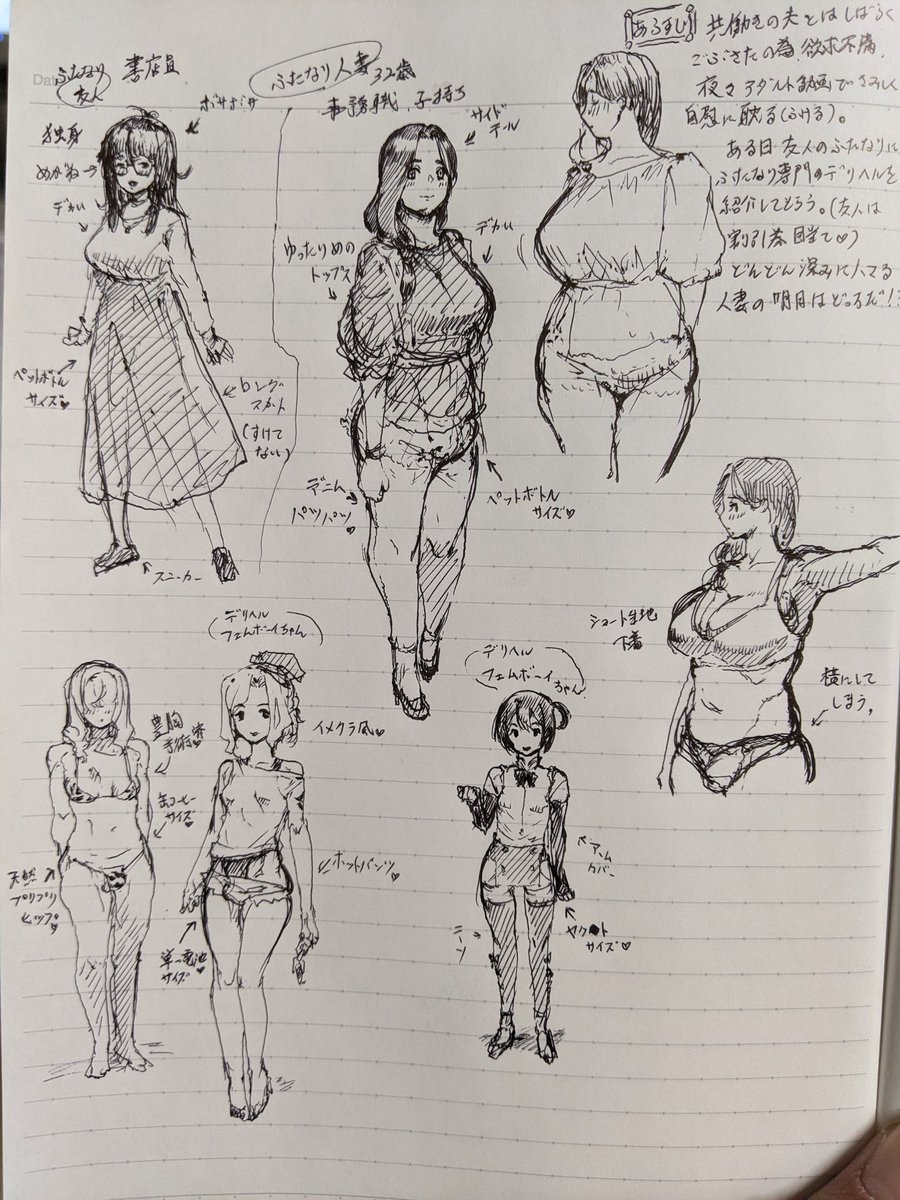 ふたなり友人
書店員
独身
めがね
デカい
ボサボサ
ペットボトル
サイズ♡
ロング
スカート
(すけて
ない)
スニーカー
ふたなり人妻 32歳
事務職 子持ち
サイド
テール
デカい
ゆったりめの
トップス
デニム
パツパツ
ペットボトル
サイズ♡
あらすじ
共働きの夫とはしばらく
ごぶさたの為、欲求不満。
夜々アダルト動画でさみしく
自慰に耽る(ふける)。
ある日 友人のふたなりに
ふたなり専門のデリヘルを
紹介してもらう。(友人は
割引券目当て♡)
どんどん深みにハマる
人妻の明日はどっちだ!?
ショート生地
下着
横にして
しまう。
デリヘル
フェムボーイちゃん
豊胸
手術済
缶コーヒー
サイズ♡
天然
プリプリ
ヒップ♡
イメクラ風♡
ホットパンツ♡
単一電池
サイズ♡
デリヘル
フェムボーイちゃん
アームカバー
ヤク●ト
サイズ♡